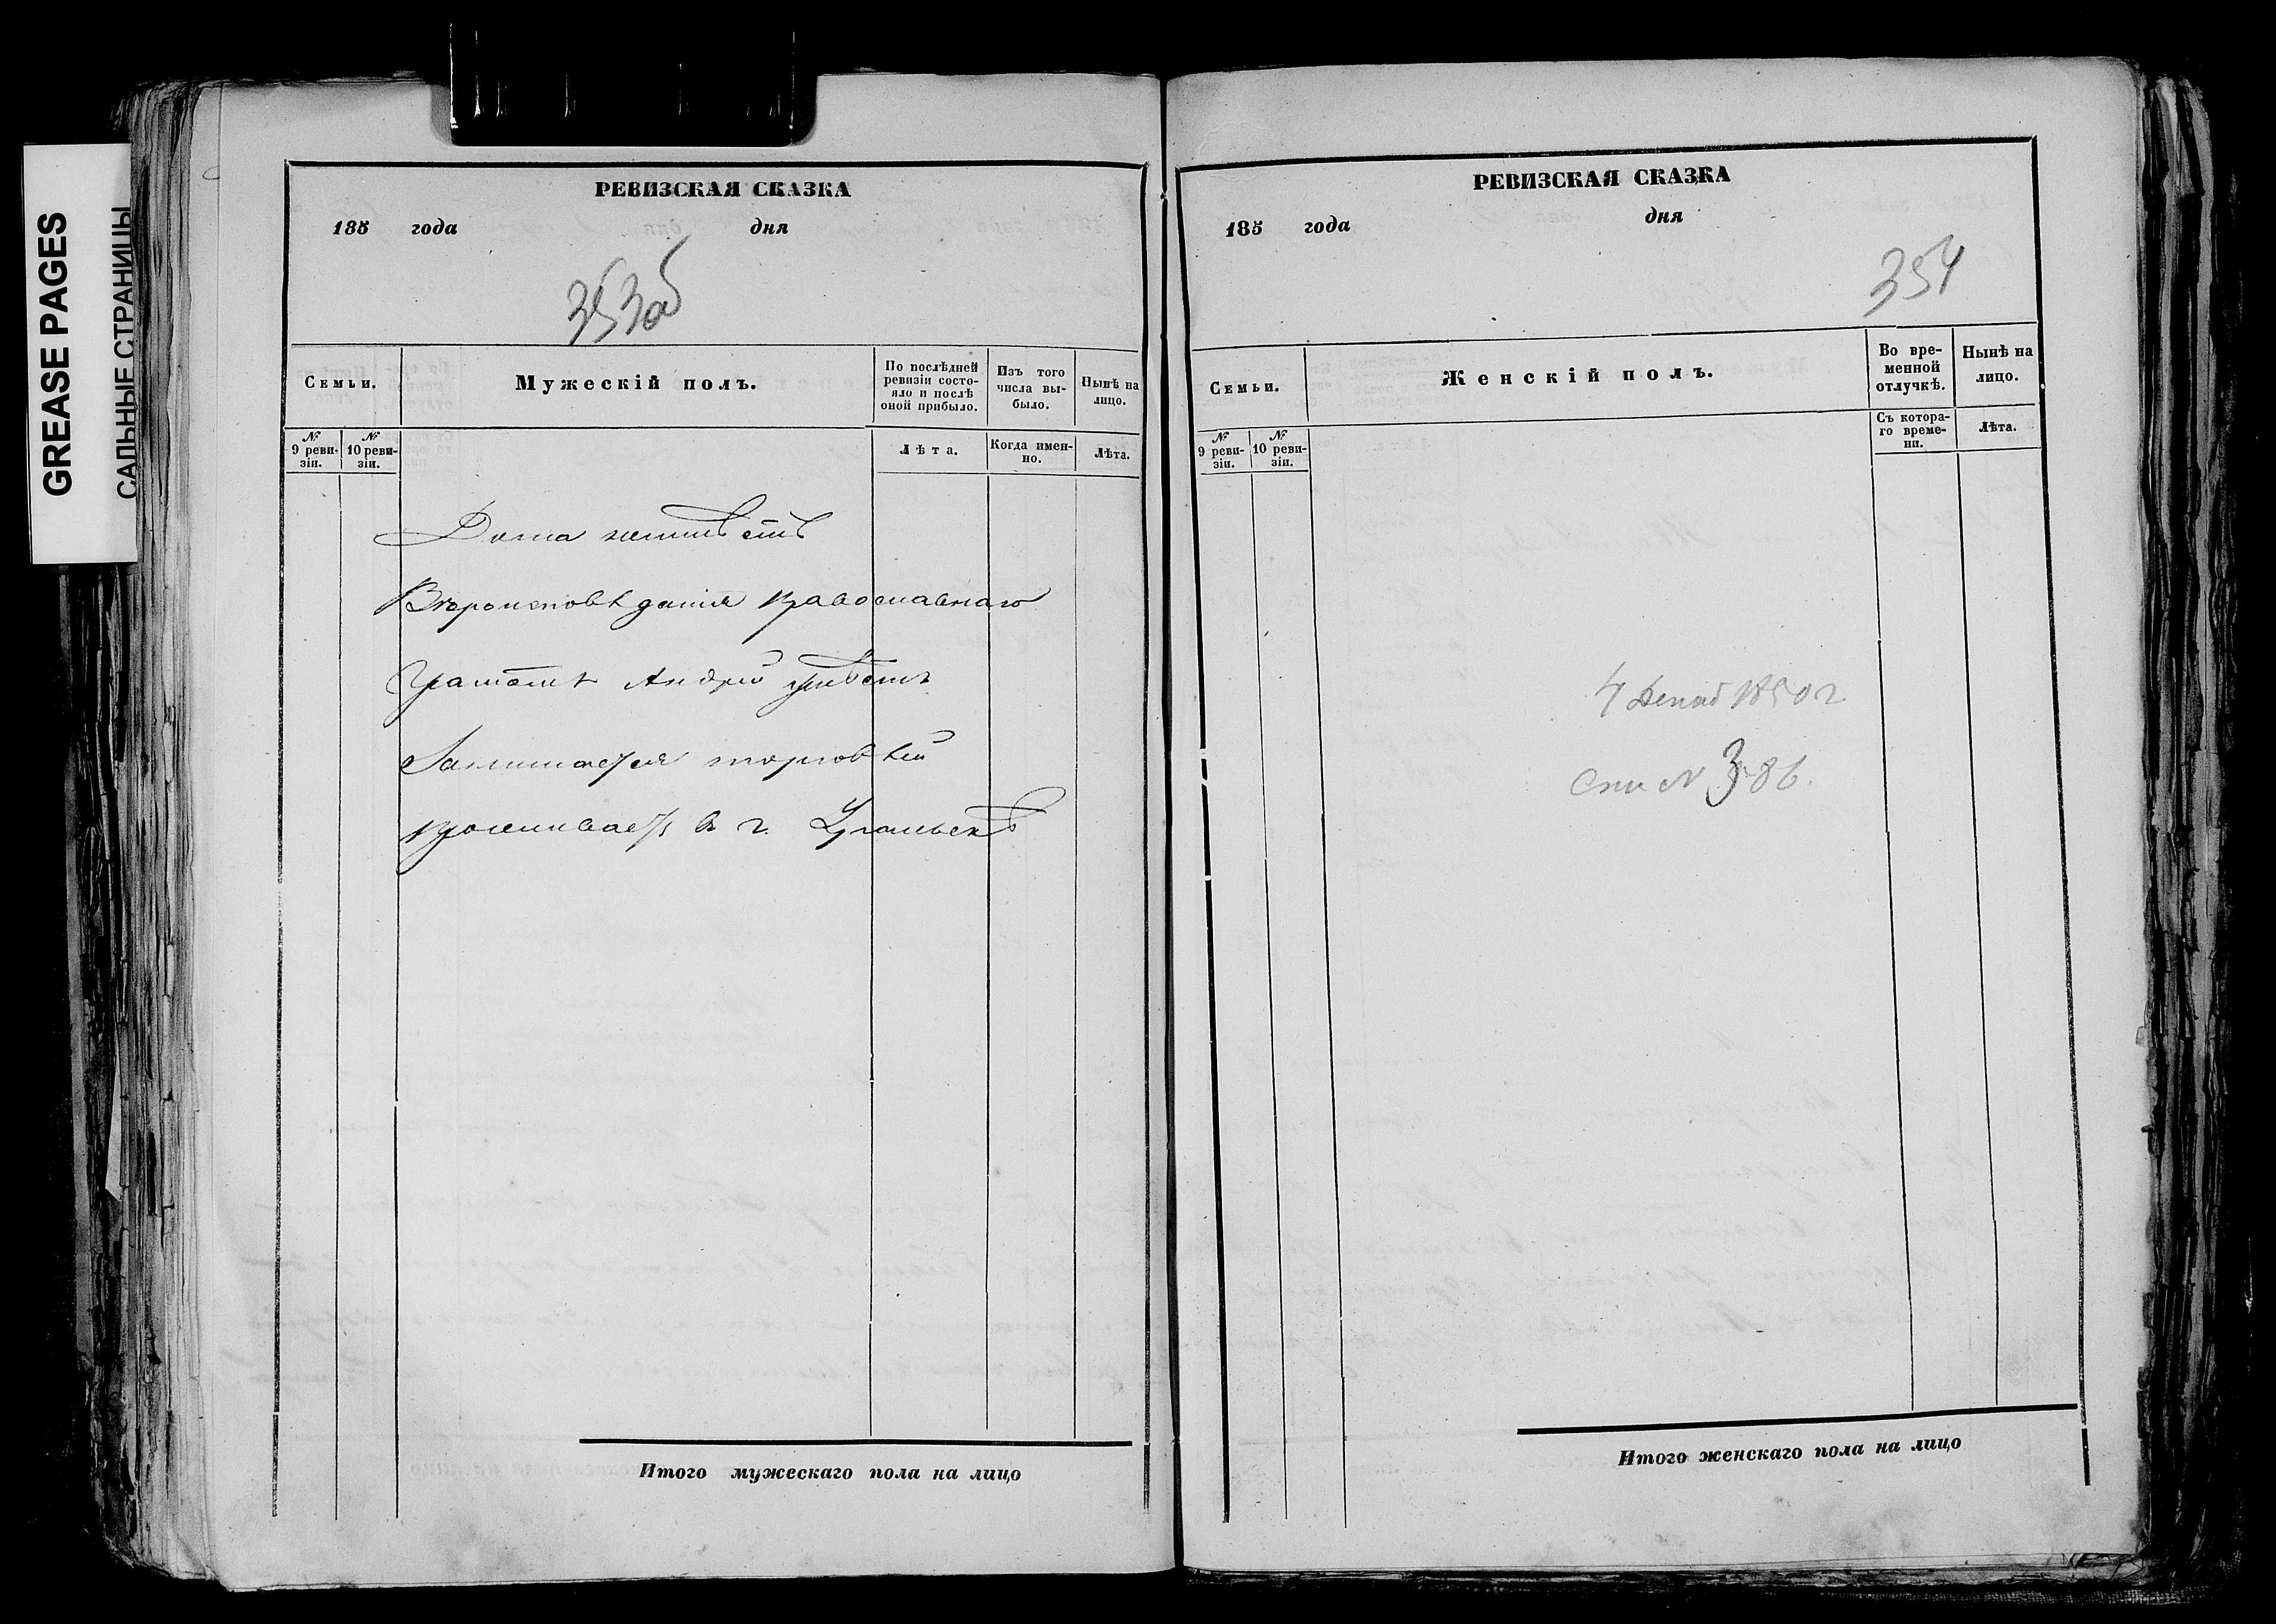 GREASE PAGES
САЛЬНЫЕ СТРАНИЦЫ
РЕВИЗСКАЯ СКАЗКА
185 года дня
353об
Семьи.
Мужескій полъ.
По послѣдней ревизіи состо-
яло и послѣ
оной прибыло.
Изъ того
числа вы-
было.
Нынѣ на
лицо.
№
9 реви-
зіи.
№
10 реви-
зіи.
Лѣта.
Когда имен-
но.
Лѣта.
Дома неимѣетъ
Вѣроисповѣданія православнаго
Грамотѣ Андрей умѣетъ
Занимается торговлей
проживаетъ в г. Уральскѣ
Итого мужескаго пола на лицо
РЕВИЗСКАЯ СКАЗКА
185 года дня
354
Семьи.
Женскій полъ.
Во вре-
менной
отлучкѣ.
Нынѣ на
лицо.
№
9 реви-
зіи.
№
10 реви-
зіи.
Съ котора-
го време-
ни.
Лѣта.
4 Декаб 1850 г.
№ 386.
Итого женскаго пола на лицо